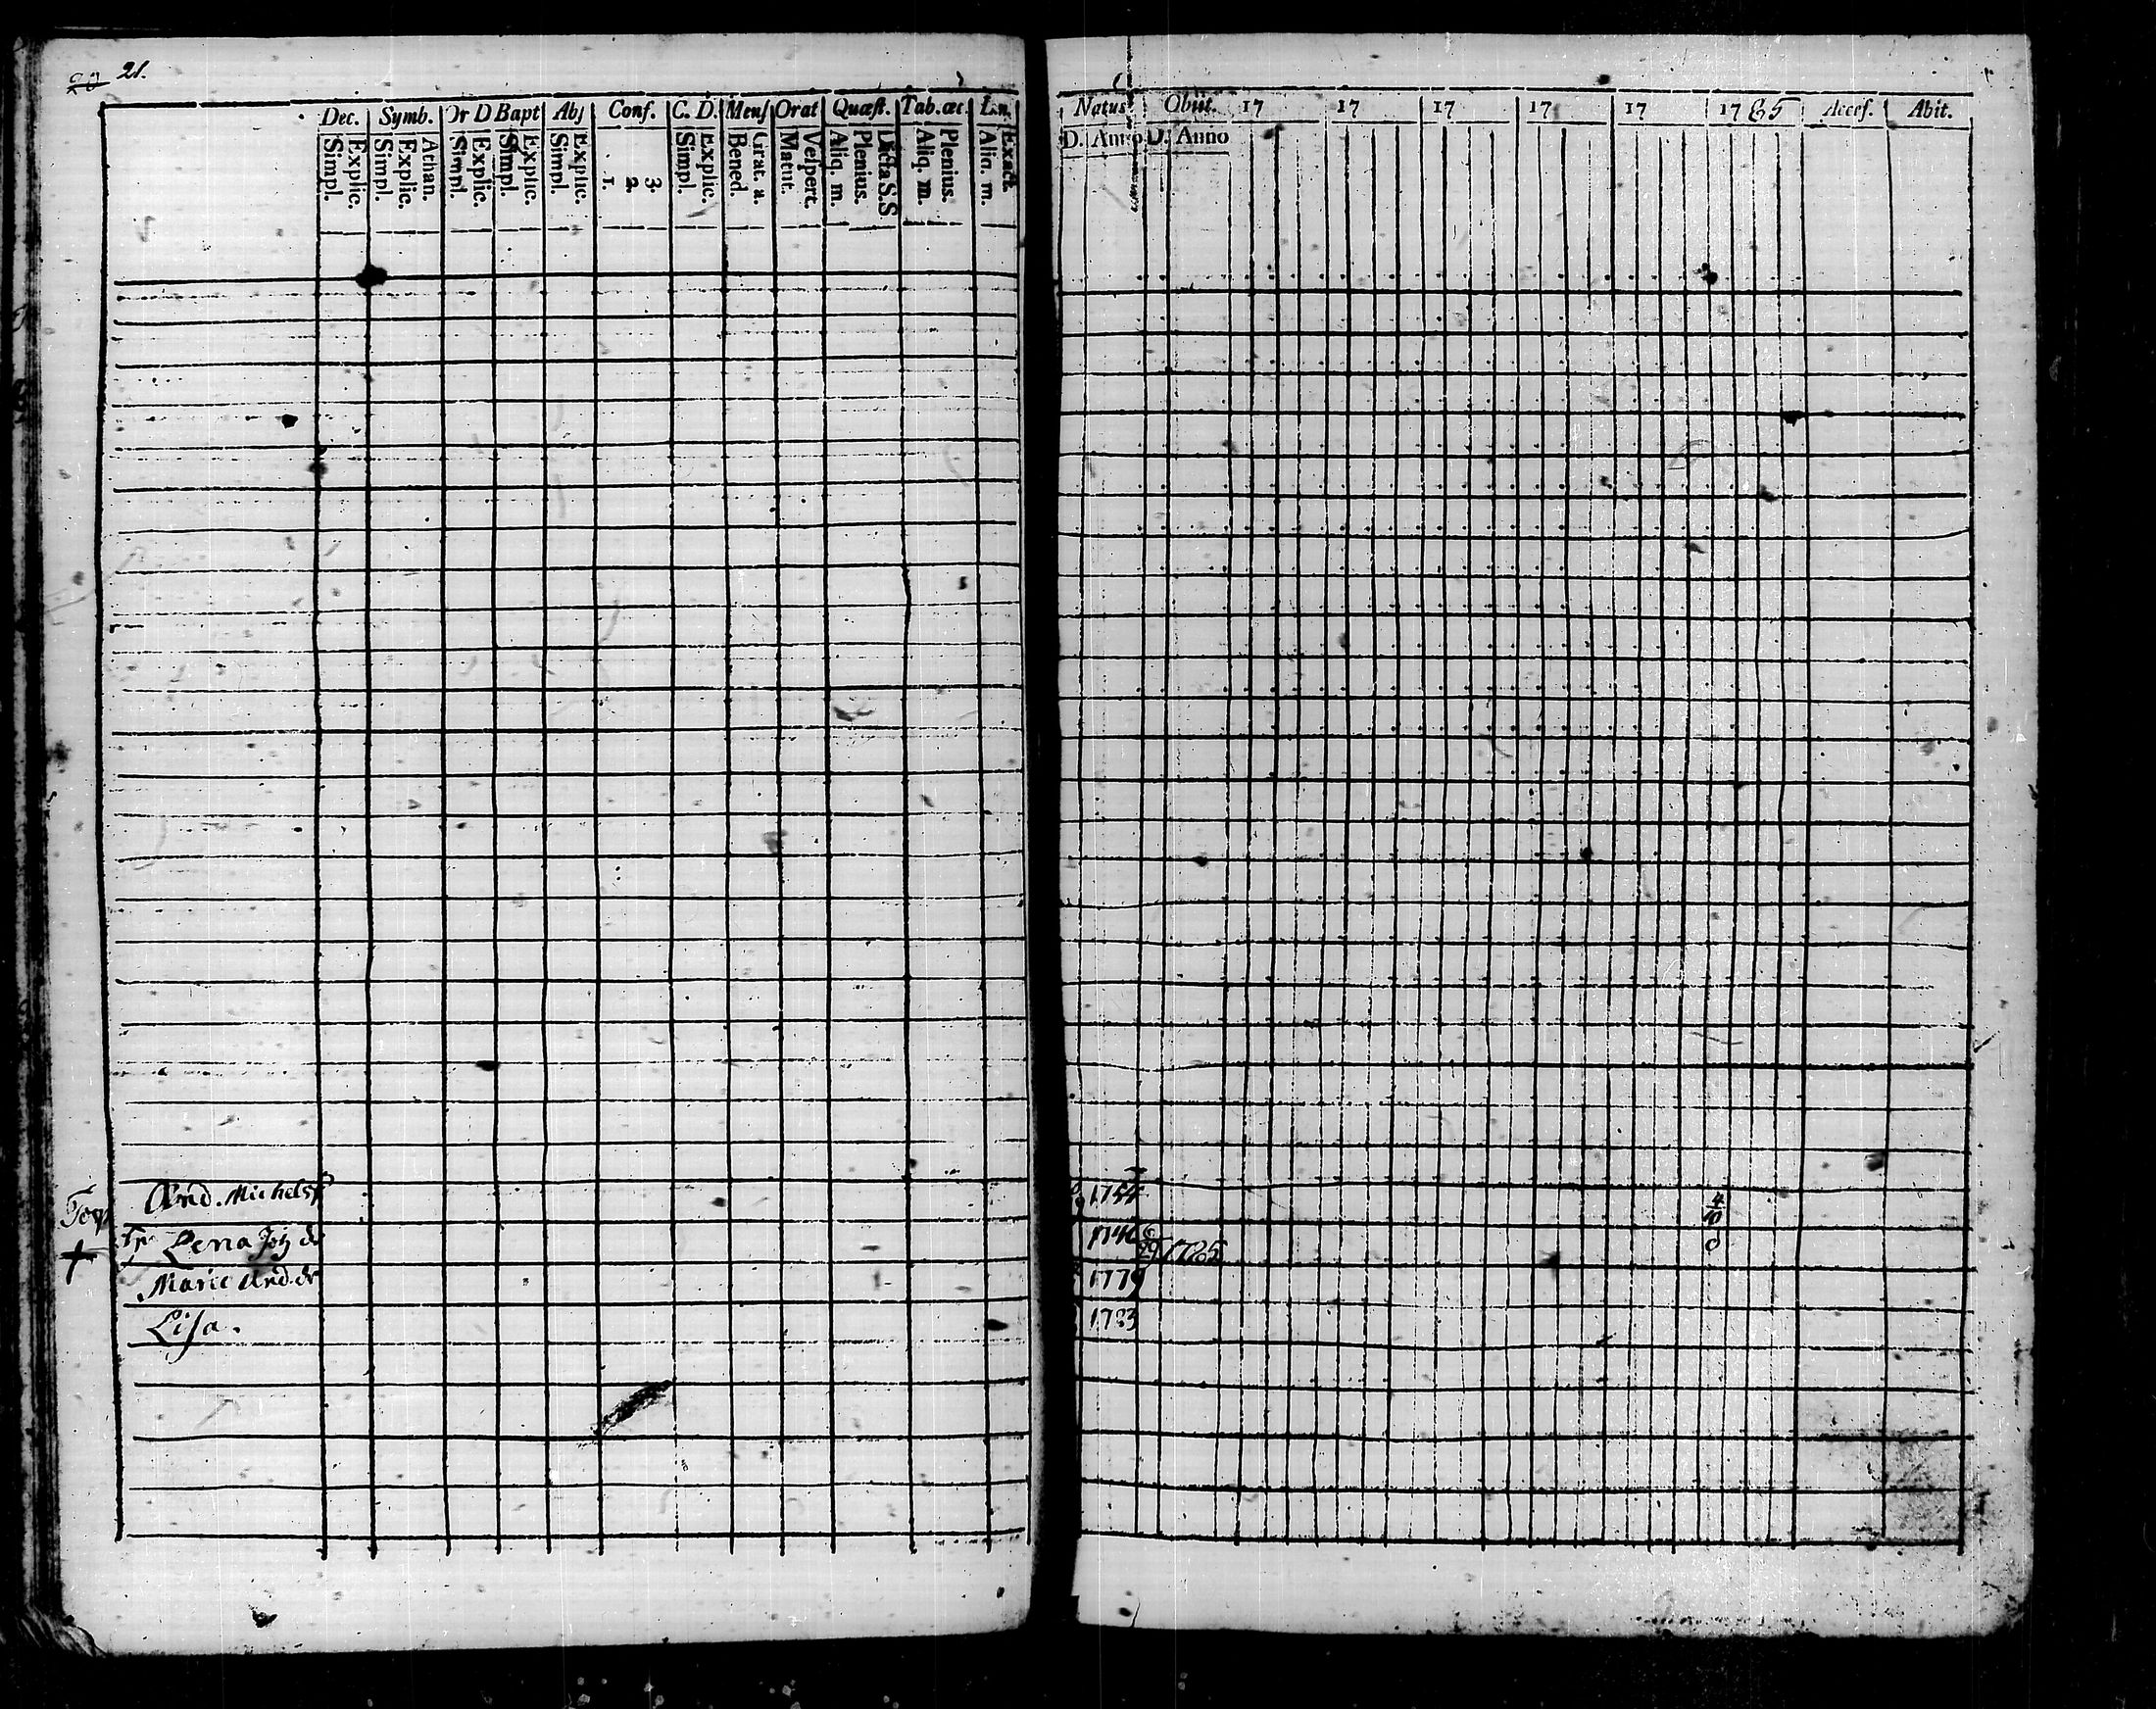 20 21.
Dec. Symb. Or D Bapt Abs Conf. C. D. Mens Orat Quæst. Tab. œc Natus Obiit. 17 17 17 17 17 1785 Acces. Abit.
Simpl. Explic. Simpl. Explic. Athan. Simpl. Explic. Simpl. Explic. Simpl. Explic. 1. 2. 3. Simpl. Explic. Bened. Grat. a. Matut. Vespert. Aliq. m. Plenius. Dicta S.S Aliq. m. Plenius. Aliq. m. Exact. D. Anno D. Anno
And. Michelss 1754 4/10
Lena 1746 6/29 1785 0
Marie And. dr 1779
Lisa. 1783